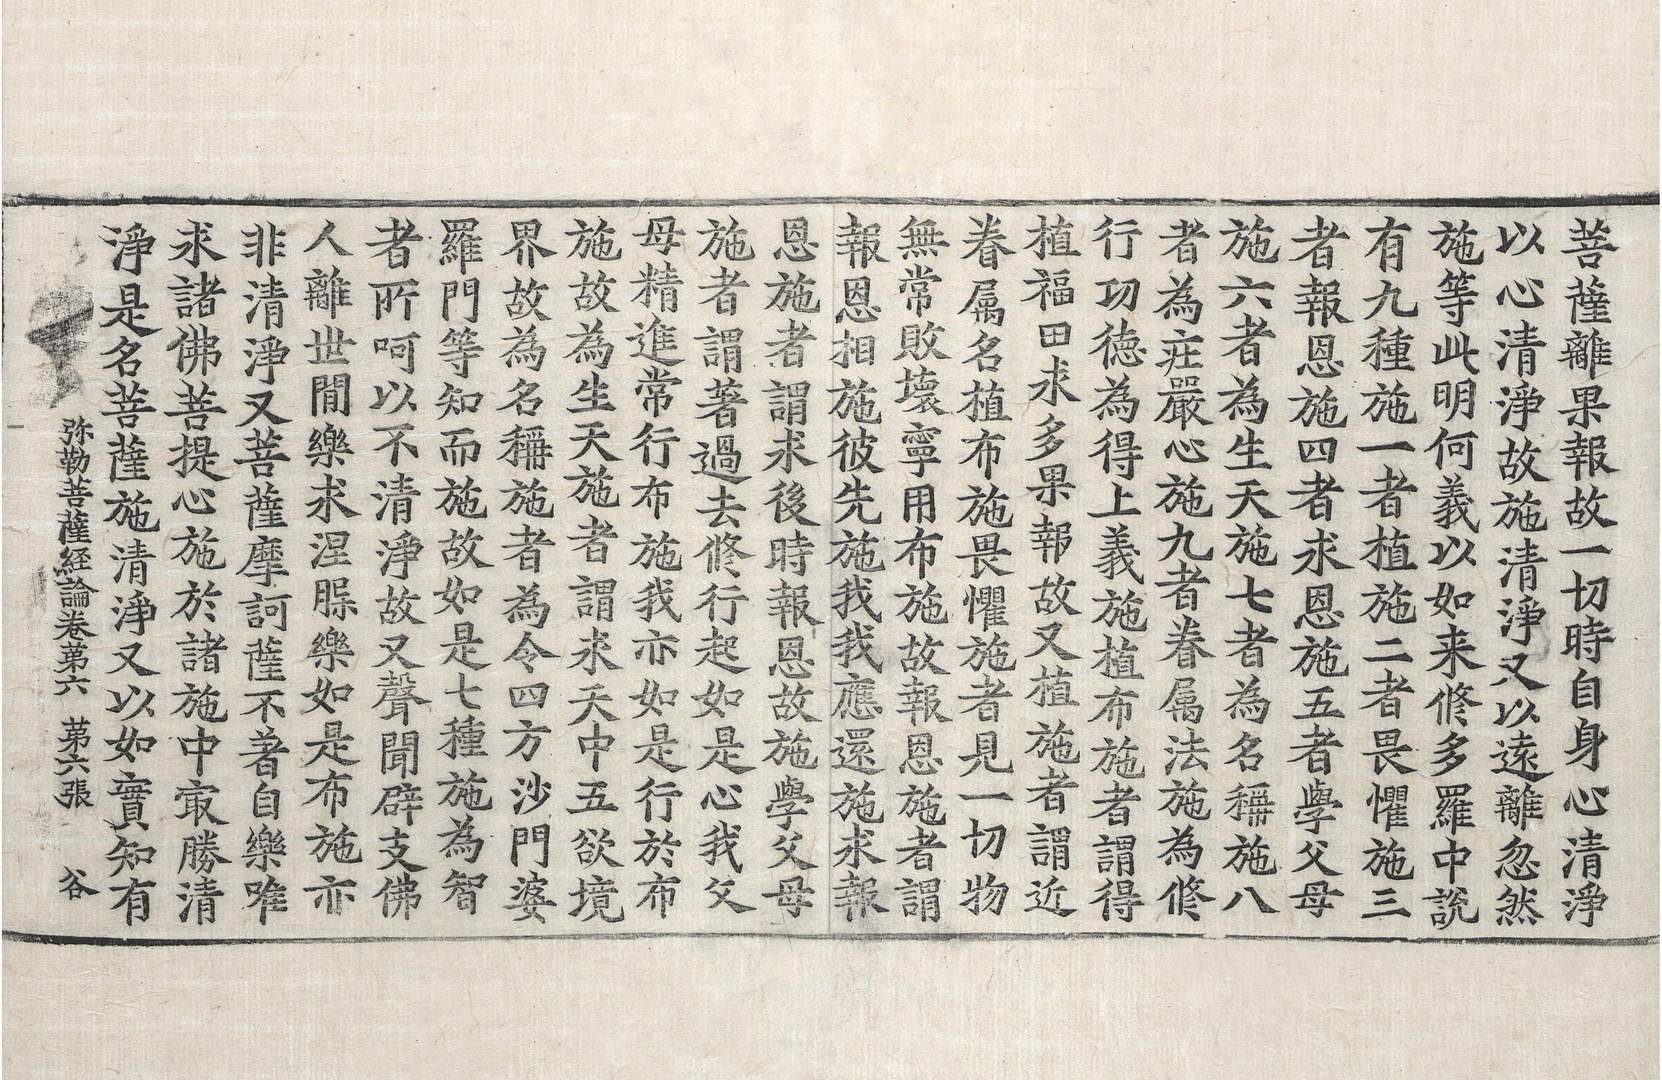 菩薩離果報故一切時自身心清淨
以心清淨故施清淨又以遠離忽然
施等此明何義以如来修多羅中說
有九種施一者植施二者畏懼施三
者報恩施四者求恩施五者學父母
施六者為生天施七者為名稱施八
者為莊嚴心施九者眷属法施為修
行功德為得上義施植布施者謂得
植福田求多果報故又植施者謂近
眷属名植布施畏懼施者見一切物
無常敗壞寧用布施故報恩施者謂
報恩相施彼先施我我應還施求報
恩施者謂求後時報恩故施學父母
施者謂著過去修行起如是心我父
母精進常行布施我亦如是行於布
施故為生天施者謂求天中五欲境
界故為名稱施者為令四方沙門婆
羅門等知而施故如是七種施為智
者所呵以不清淨故又聲聞辟支佛
人離世間樂求涅槃樂如是布施亦
非清淨又菩薩摩訶薩不著自樂唯
求諸佛菩提心施於諸施中㝡勝清
淨是名菩薩施清淨又以如實知有
弥勒菩薩経論卷第六　第六張　谷